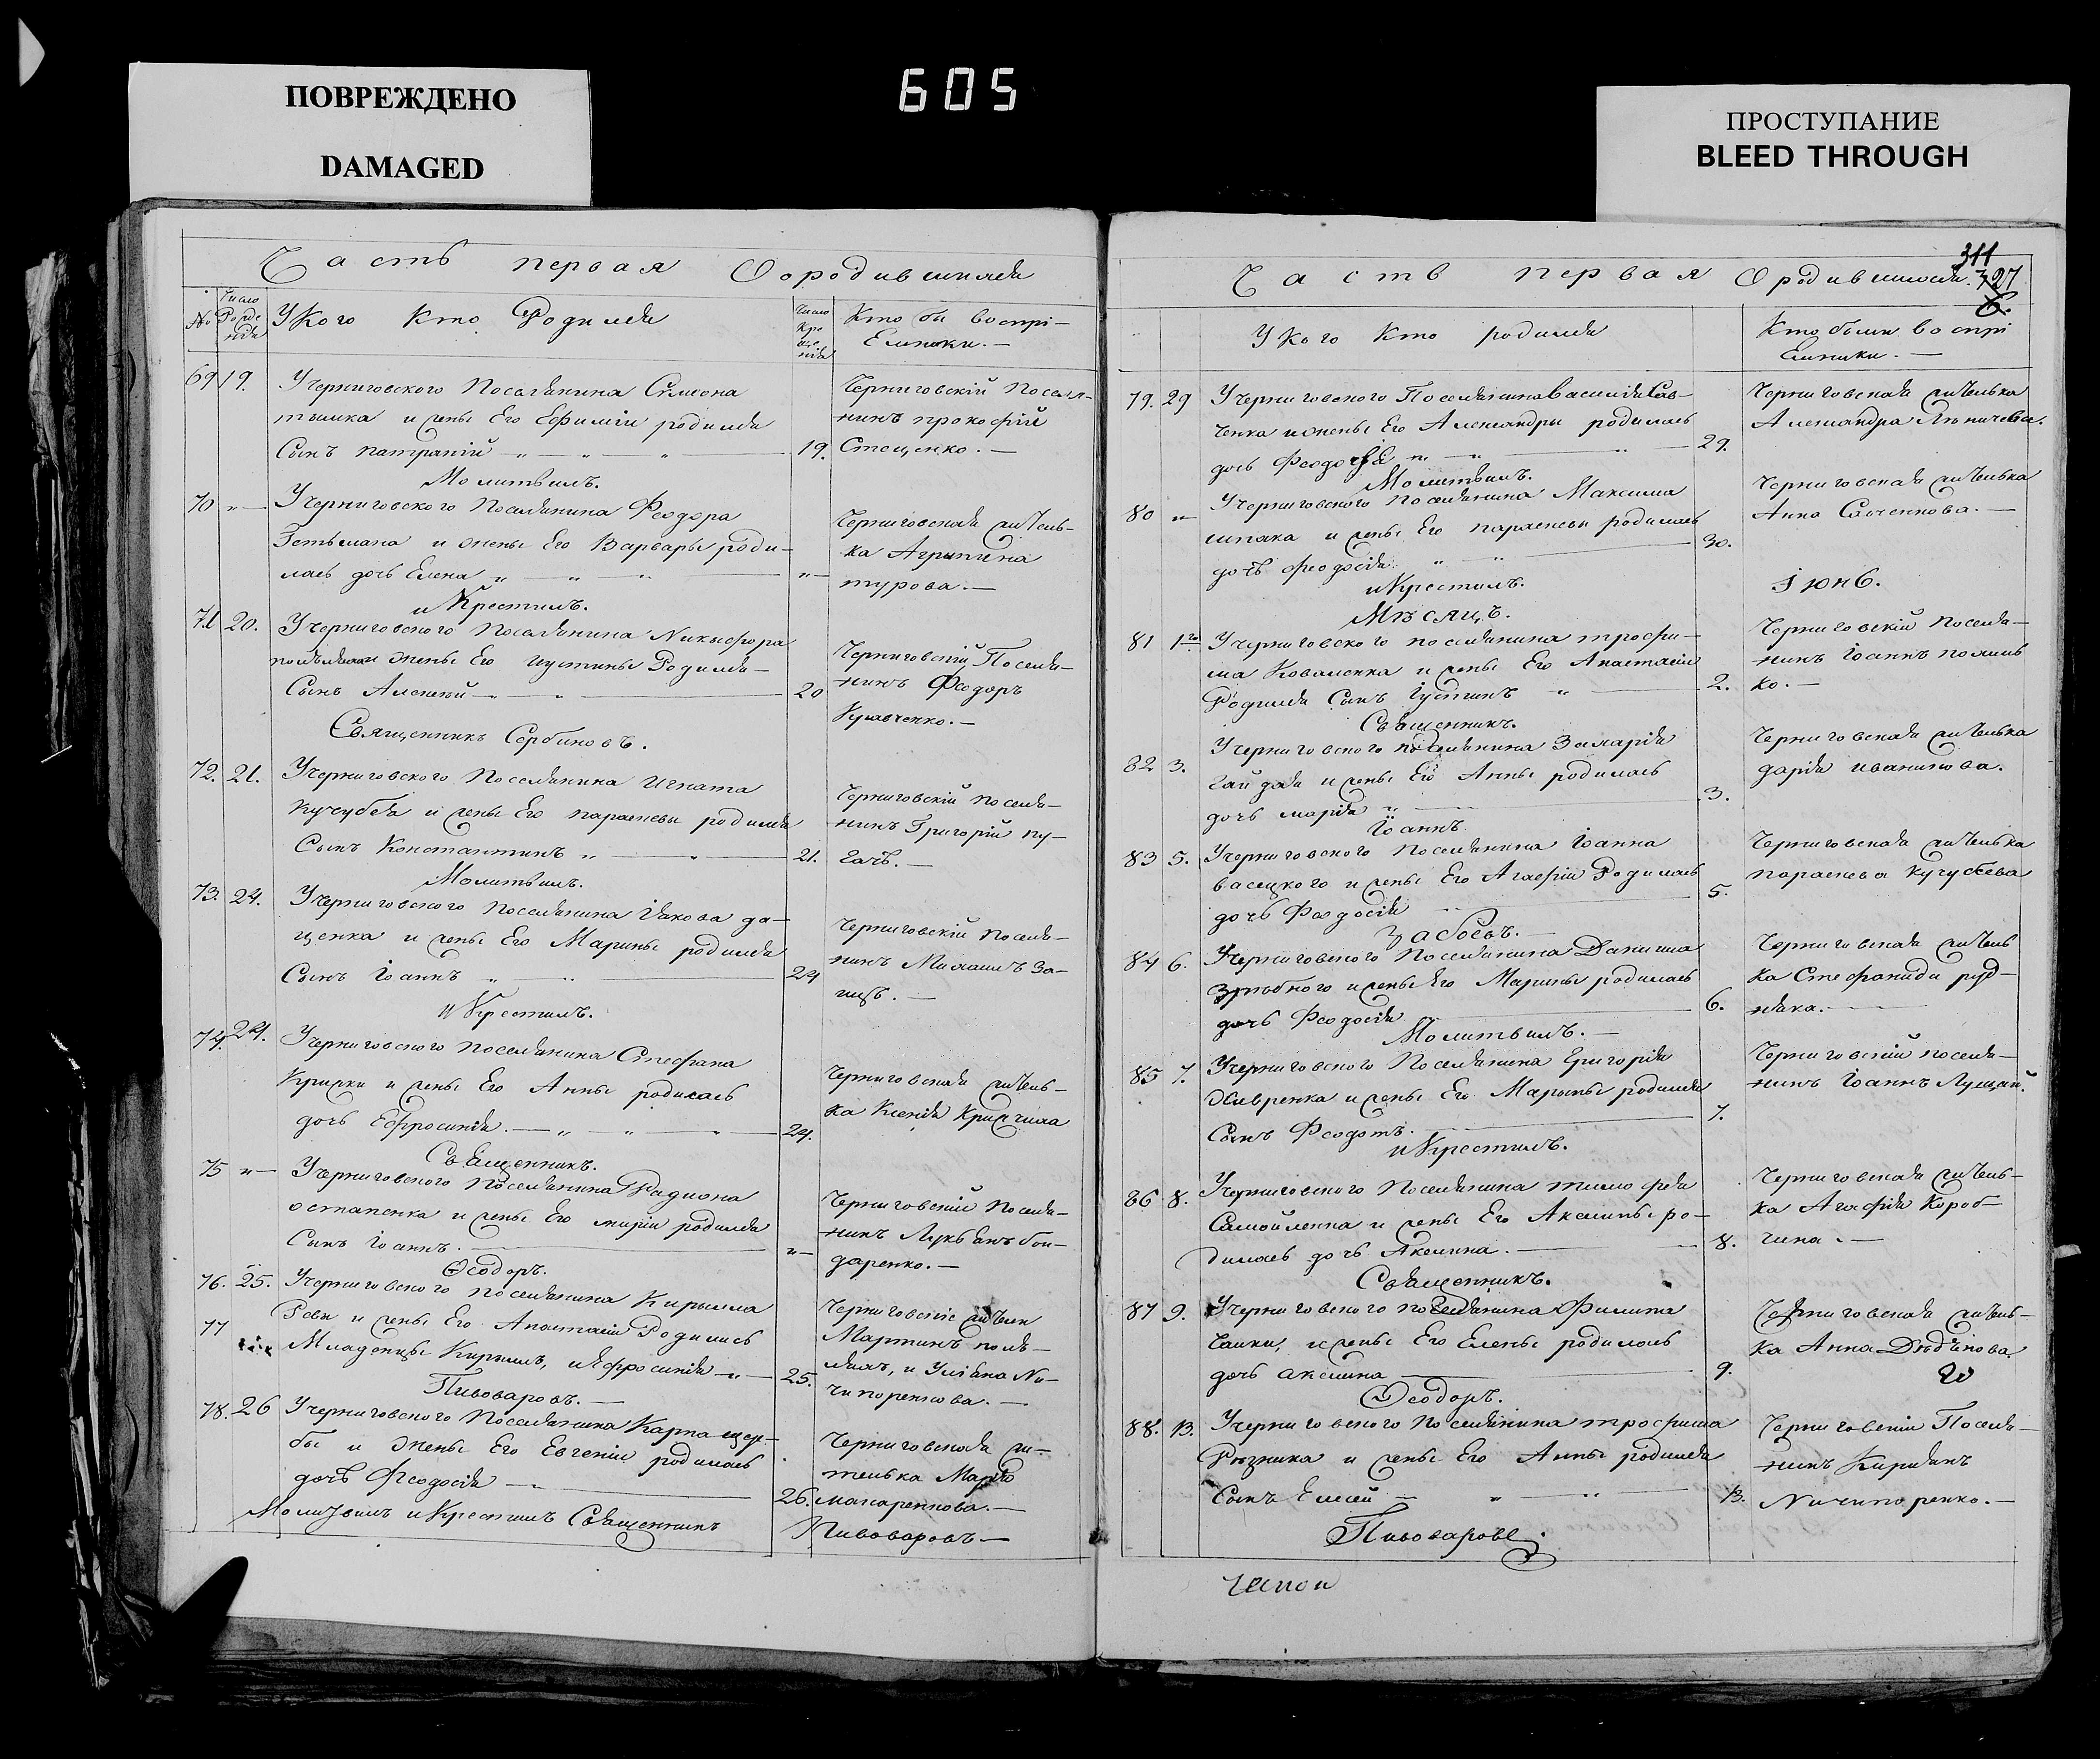 ПОВРЕЖДЕНО
DAMAGED
605
ПРОСТУПАНИЕ
BLEED THROUGH
Часть первая О родившихся
№ Число Рожде нія У Кого Кто Родился Число Кре ще нія Кто бы воспрі-
Емники. —
69 19. У Черниговского Поселянина Сѵмеона
и жены Его Евфиміи родился
Сынъ Патрапій 19.
Черниговскій Поселя-
нинъ Прокофій
Стеценко. —
Молитвилъ.
70 У Черниговского Поселянина Феодора
Гетьмана и жены Его Варвары роди-
лась дочь Елена
Черниговская житель-
ка Агрипина
турова. —
и Крестилъ.
71 20. У Черниговского Поселянина Никифора
и жены Его Иустины Родился
Сынъ Алексѣй 20
Черниговскій Поселя-
нинъ Феодоръ
Кравченко. —
Священникъ Сербиновъ.
72. 21. У Черниговского Поселянина Игната
Кучубея и жены Его параскевы родился
Сынъ Константинъ 21.
Черниговскій поселя-
нинъ Григорій пу-
гачъ. —
Молитвилъ.
73. 24. У Черниговского Поселянина Іакова да-
ценка и жены Его Марины родился
Сынъ Іоаннъ 24
Черниговскій поселя-
нинъ Михаилъ За-
яцъ. —
и Крестилъ.
74. 24. У Черниговского Поселянина Стефана
и жены Его Анны родилась
дочь Ефросинія. 24.
Черниговская житель-
ка Ксенія
Священникъ.
75 У Черниговского Поселянина Радиона
остапенка и жены Его маріи родился
Сынъ Іоаннъ.
Черниговскій Поселя-
нинъ Лукьянъ бон-
даренко. —
Феодоръ.
76. 25. У Черниговского поселянина Кирилла
77 Ревы и жены Его Анастасіи Родились
Младенцы Кириллъ, и Ефросинія 25.
Черниговскіе жители
Мартинъ поля-
ляхъ, и Уліяна Ни-
чипоренкова. —
Пивоваровъ. —
78. 26 У Черниговского Поселянина Карпа щер-
бы и жены Его Евгеніи родилась
дочь Феодосія 26.
Черниговская жи-
телька
макаренкова. —
Молитвилъ и Крестилъ Священникъ Пивоваровъ —
311
727
Часть первая О родившихся.
У Кого Кто родился Кто были воспрі
Емники. —
79. 29 У Черниговского Поселянина Василія Сав-
ченка и жены Его Александры родилась
дочь 29.
Черниговская жителька
Александра
Молитвилъ.
80 У Черниговского поселянина Максима
шпака и жены Его параскевы родилась
дочь феодосія 30.
Черниговская жителька
Анна Савченкова. —
и Крестилъ.
Мѣсяцъ. Іюнь.
81 1го У Черниговского поселянина трофи-
ма Коваленка и жены Его Анастасіи
Родился Сынъ Іустинъ 2.
Черниговскій поселя-
нинъ Іоаннъ
ко. —
Священникъ.
82 3. У Черниговского поселянина Захарія
гайдая и жены Его Анны родилась
дочь марія 3.
Черниговская жителька
дарія иванинова.
Іоаннъ.
83 5. У Черниговского поселянина Іоанна
васецкого и жены Его Агафіи Родилась
дочь Феодосія 5.
Черниговская жителька
параскева Кучубева
Забоевъ. —
84 6. У Черниговского Поселянина Даниила
и жены Его Марины родилась
дочь Феодосія 6.
Черниговская житель
ка Стефанида руд-
няка. —
Молитвилъ. —
85 7. У Черниговского Поселянина Григорія
и жены Его Марины родился
Сынъ Феодотъ. 7.
Черниговскій поселя-
нинъ Іоаннъ Лущай.
и Крестилъ.
86 8. У Черниговского Поселянина тимофея
Самойленка и жены Его Акелины ро-
дилась дочь Акелина. 8.
Черниговская житель-
ка Агафія Короб-
чина. —
Священникъ.
87 9. У Черниговского поселянина Филипа
чайки, и жены Его Елены родилась
дочь акелина 9.
Черниговская житель-
ка Анна
Феодоръ.
88. 13. У Черниговского поселянина трофима
Рѣзника и жены Его Анны родился
Сынъ Елисей 13.
Черниговскій Поселя-
нинъ Киріянъ
Ничипоренко. —
Пивоваровъ.